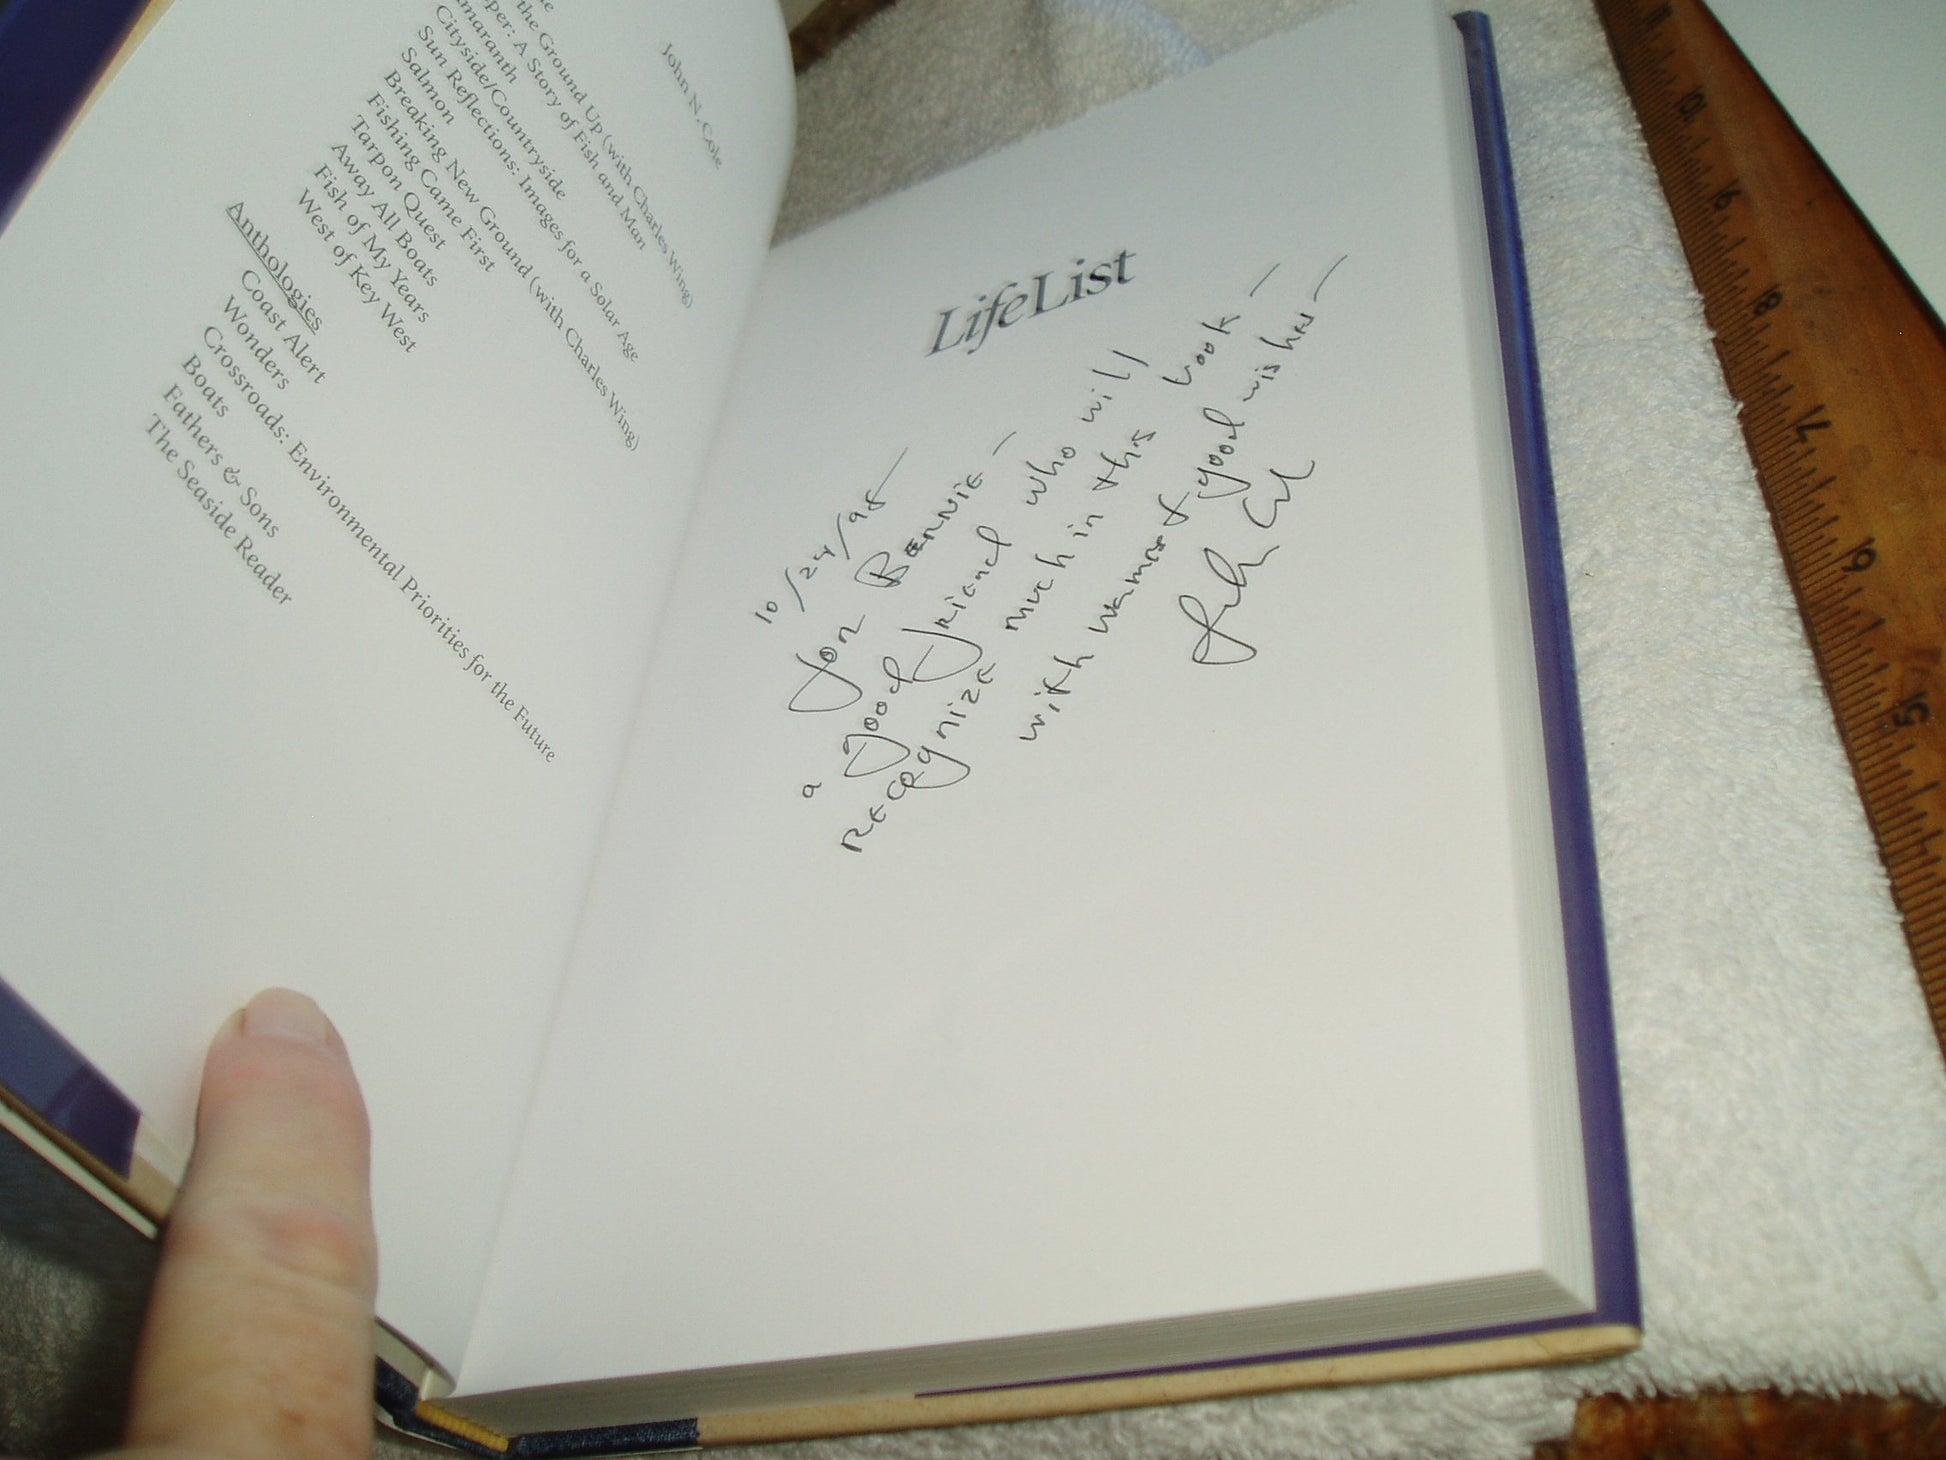 John N. Cole
the Ground Up (with Charles Wing)
per: A Story of Fish and Man
maranth
Cityside/Countryside
Sun Reflections: Images for a Solar Age
Salmon
Breaking New Ground (with Charles Wing)
Fishing Came First
Tarpon Quest
Away All Boats
Fish of My Years
West of Key West
Anthologies
Coast Alert
Wonders
Crossroads: Environmental Priorities for the Future
Boats
Fathers & Sons
The Seaside Reader
LifeList
10/24/98 —
for BENNIE —
a good friend who will
RECOgnizE much in this book —
with warmest good wishes —
John Cole
11
10
9
8
7
6
5